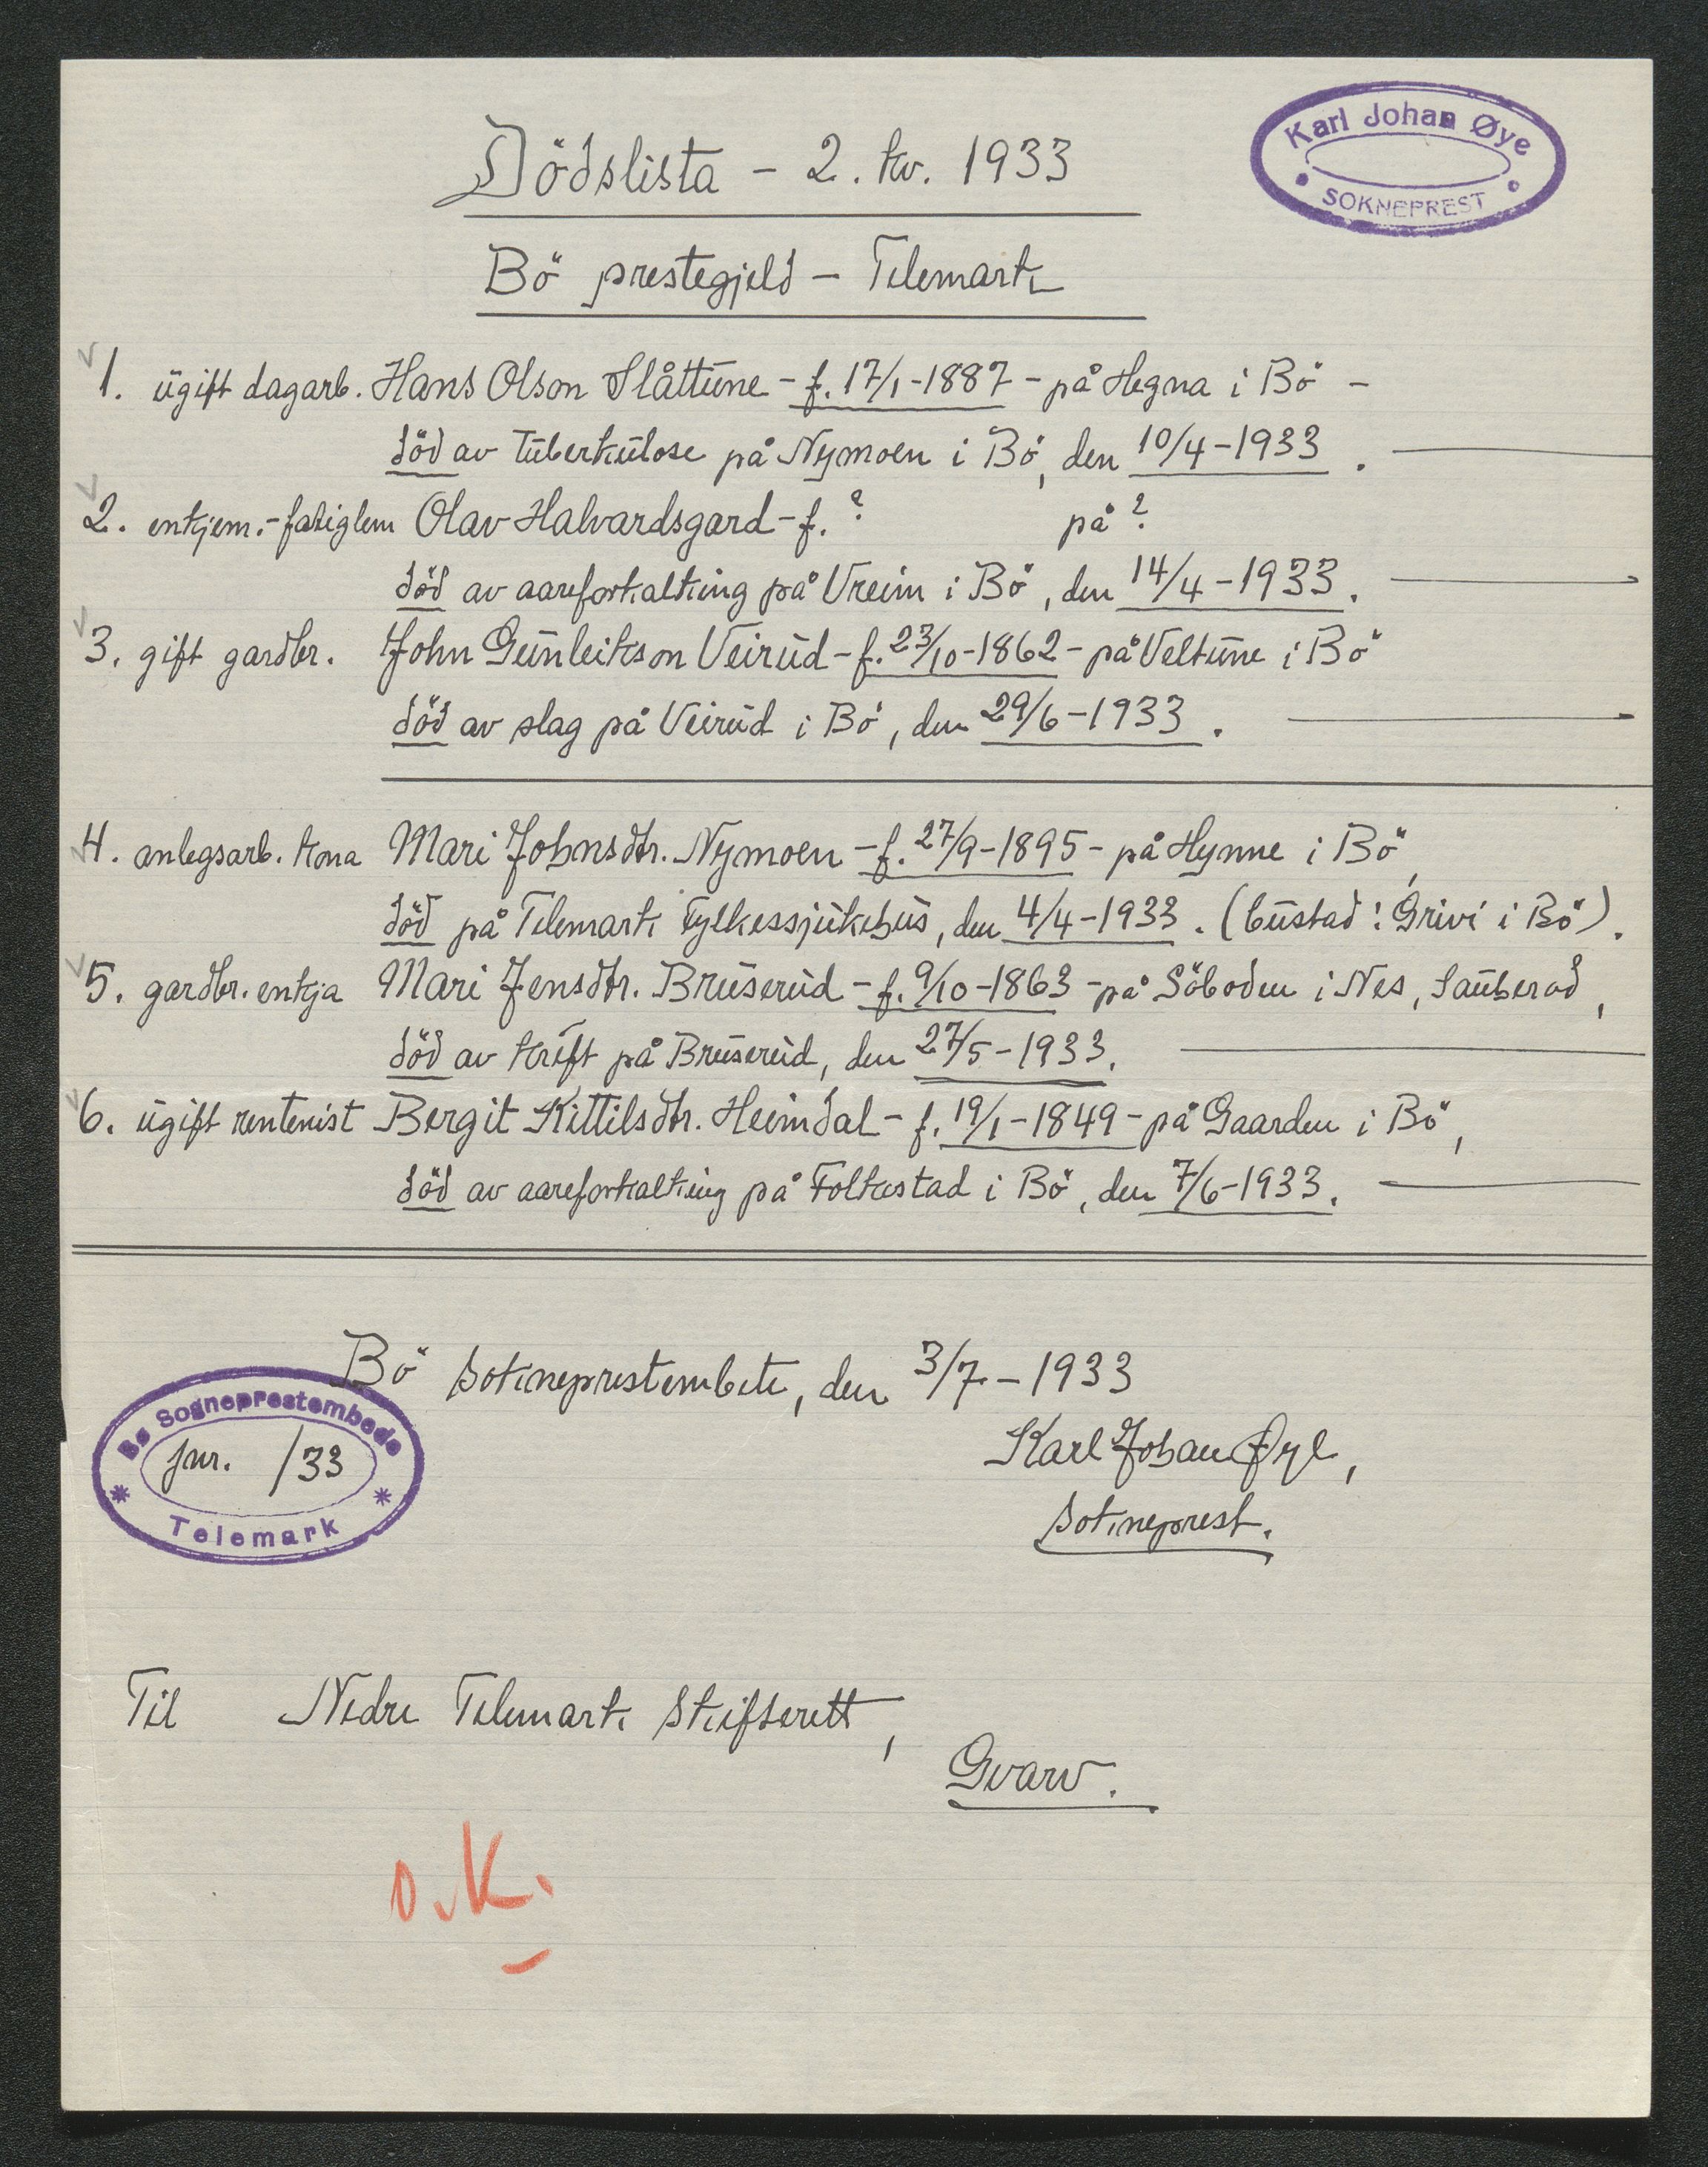 Karl Johan Øye
SOKNEPREST
Dödslista - 2. kv. 1933
Bö prestegjeld - Telemark
1. ugift dagarb. Hans Olson Slåttune - f. 17/1-1887 - på Hegna i Bö -
död av tuberkulose på Nymoen i Bö, den 10/4-1933.
2. enkjem.-fatiglem Olav Halvardsgard - f. ? på ?
död av aareforkalking på Vreim i Bö, den 14/4-1933.
3. gift gardbr. John Gunleikson Veirud - f. 23/10-1862 - på Veltune i Bö
död av slag på Veirud i Bö, den 29/6-1933.
4. anlegsarb. kona Mari Johnsdtr. Nymoen - f. 27/9-1895 - på Hynne i Bö,
död på Telemark Fylkessjukehus, den 4/4-1933. (bustad: Grivi i Bö).
5. gardbr. enkja Mari Jensdtr. Bruserud - f. 9/10-1863 - på Söboden i Nes, Sauherad,
död av kreft på Bruserud, den 27/5-1933.
6. ugift rentenist Bergit Kittilsdtr. Heimdal - f. 19/1-1849 - på Gaarden i Bö,
död av aareforkalking på Folkestad i Bö, den 7/6-1933.
Bö sokneprestembete, den 3/7-1933
Bø Sogneprestembede
jnr. /33
Telemark
Karl Johan Øye,
sokneprest.
Til Nedre Telemark skifterett,
Gvarv.
o.k.